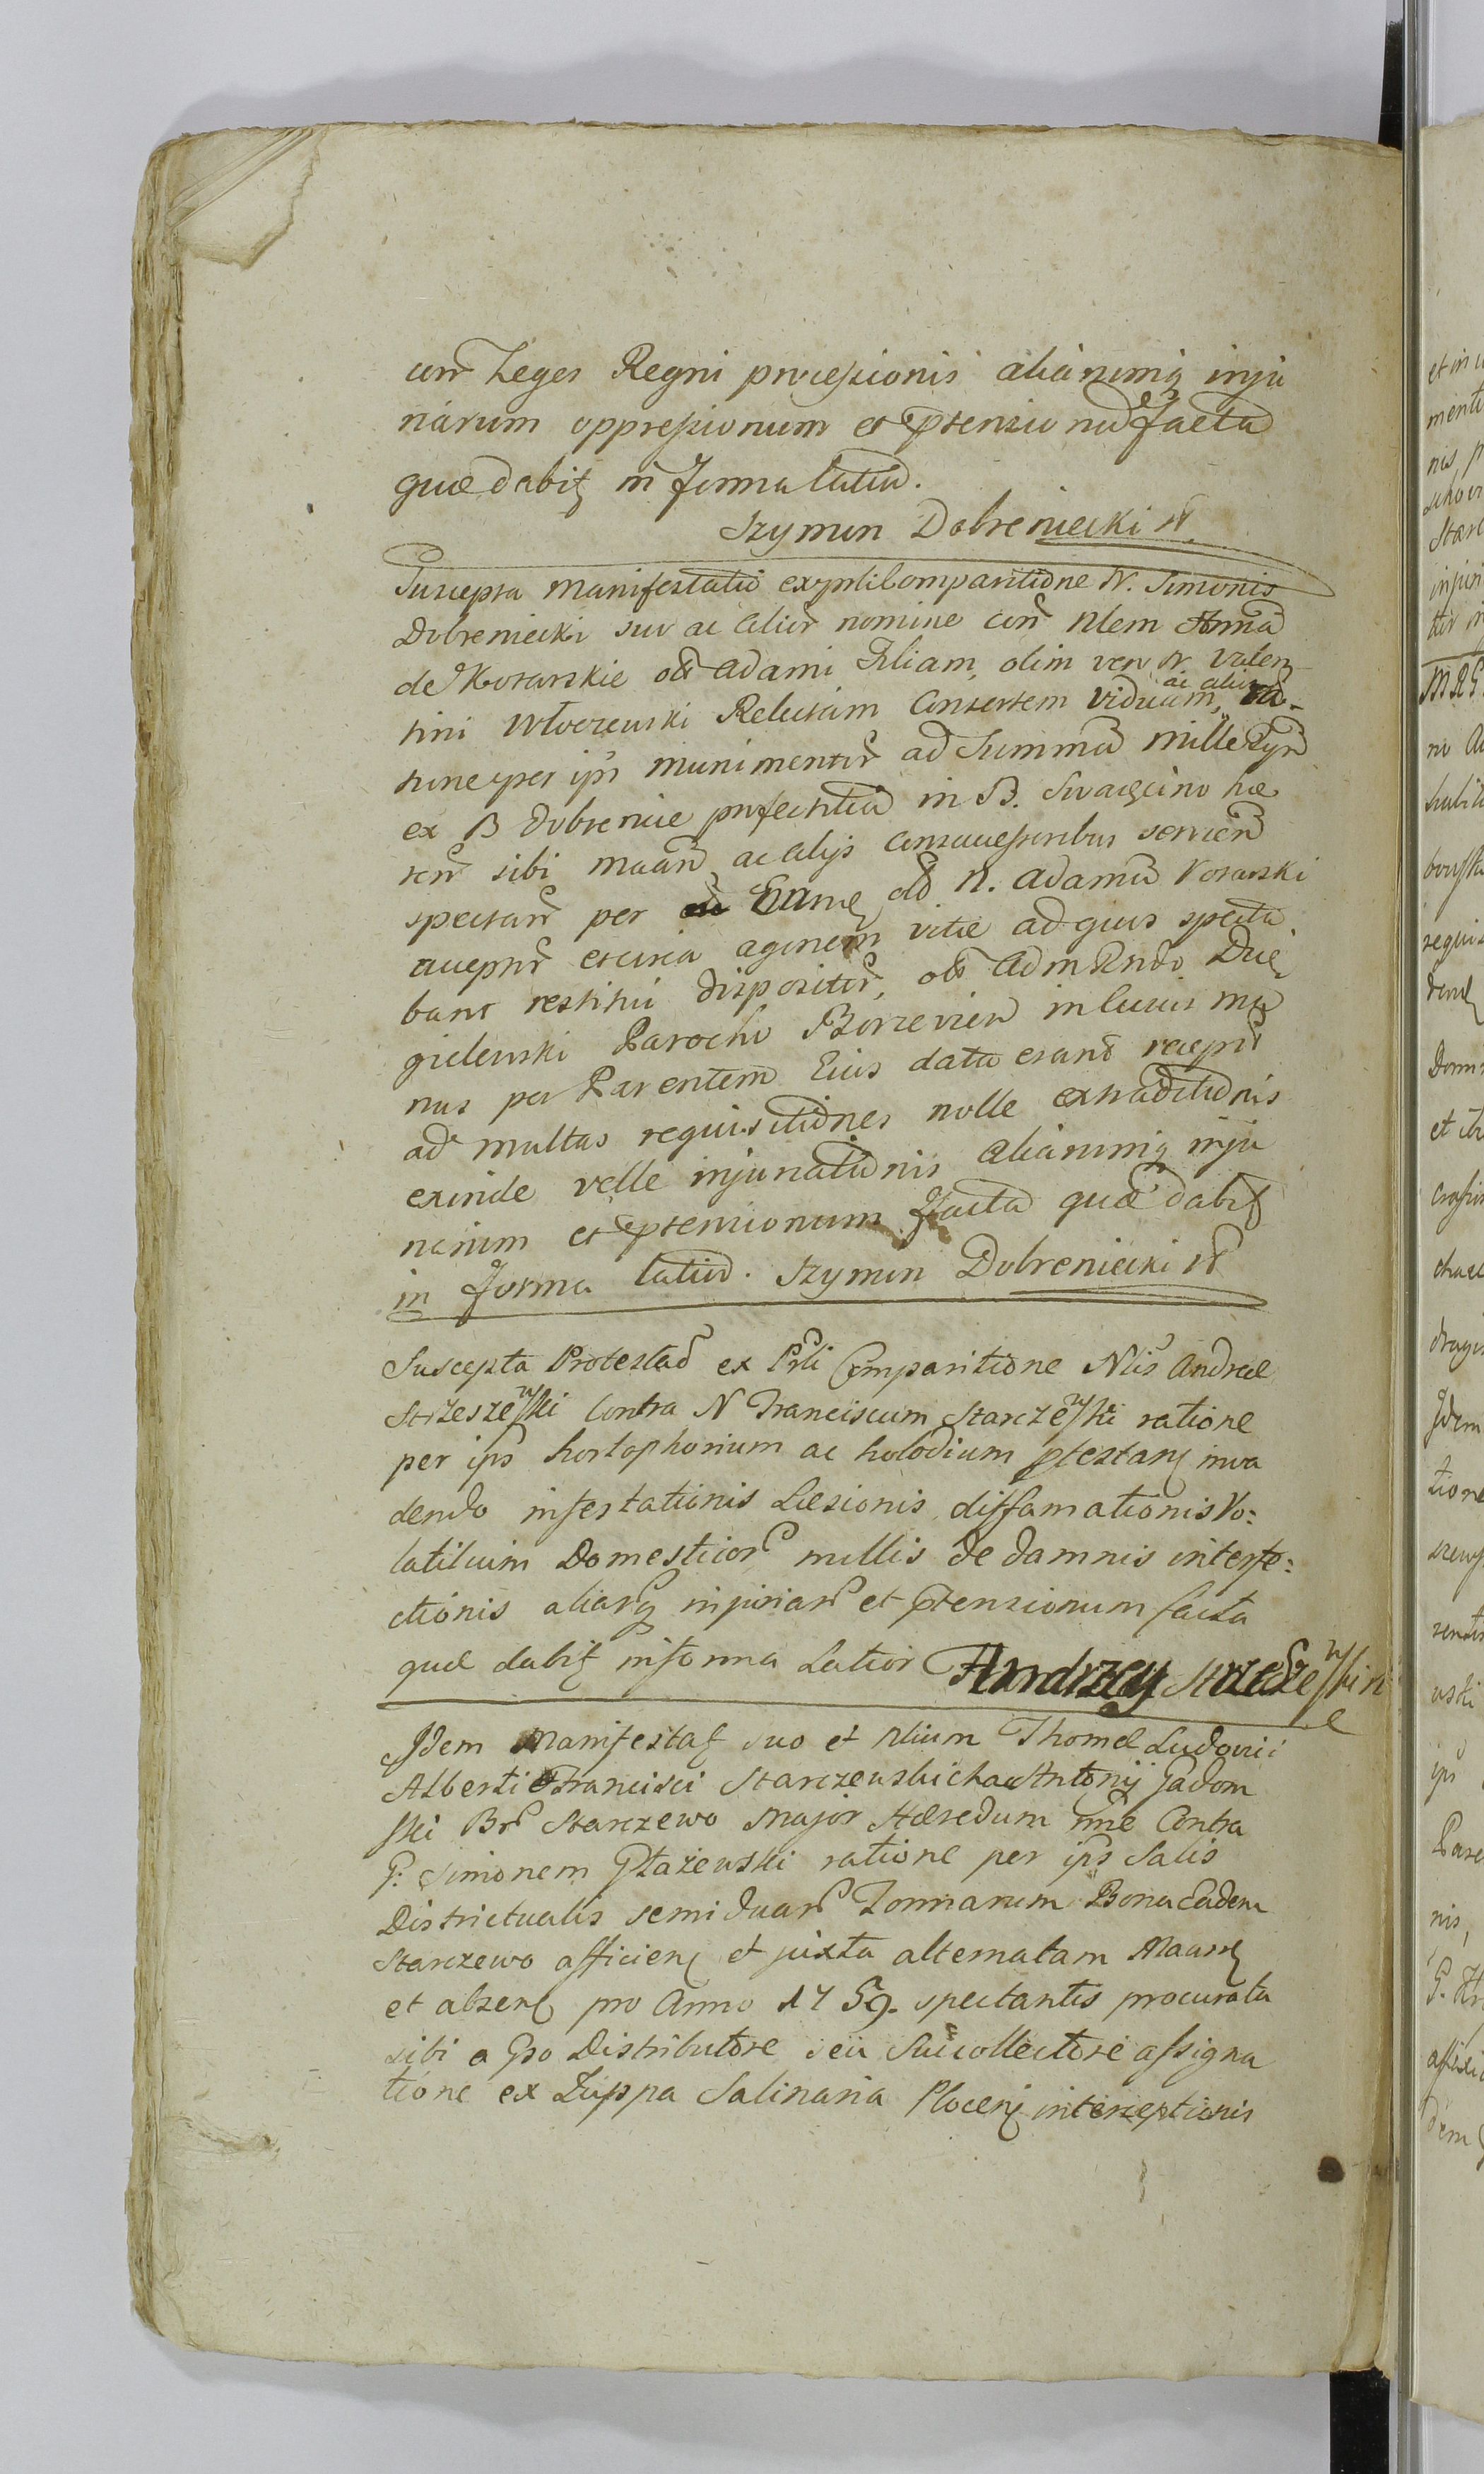 con Leges Regni processionis aliarumq inju
riarum oppressionum et ptensionu facta
quæ dabit in forma latiu.
Szymon Dobreniecki N.
Suscepta Manifestatio ex psli Comparitione N. Simonis
Dobreniecki suo ac alior nomine con Nlem Anna
de Kosarskie oli Adami Filiam, olim vero N. Valen
tini Włoczewski Relictam Consortem Viduam, ac alior ra-
tione per ips munimentor ad Summa mille
ex B Dobrenice in B. hæ
ren sibi maan ac alijs consuccessoribus servien
spectan per Eund oli N. Adamu Kosarski
acceptor et circa agonem vitæ ad quos specta
bant restitui dispositor, oli AdmRndo
gielewski Parocho in
nus per Parentem Eius data erant recept
ad multas requisitiones nolle extraditionis
exinde velle injuriationis aliarumq inju
riarum et ptensionum facta quæ dabit
in forma latiu. Szymon Dobreniecki N
Suscepta Protestao ex Psli Comparitione Nlis Andreæ
Strzeszewski Contra N Franciscum Starczewski ratione
per ips hortophorium ac holodium ptestan inva
dendo infestationis Læsionis diffamationis Vo:
latilium Domesticor nullis de damnis interfe:
ctionis aliarq injuriar et ptensionum facta
quæ dabit in forma Latior Andrzey Strzeszewski n
Idem Manifestat suo et Nlium Thomæ Ludovici
Alberti et Francisci Starczewskich ac Antonij Gadom
ski Br Starczewo Major Hæredum nne Contra
G: Simonem Głażewski ratione per ips Salis
Districtualis semi duar Tonnarum Bona Eadem
Starczewo afficien et juxta alternatam Maan
et absen pro Anno 1759. spectantis procurata
sibi a Gso Distributore seu Succollectore assigna
tione ex Zuppa Salinaria Plocen interceptionis